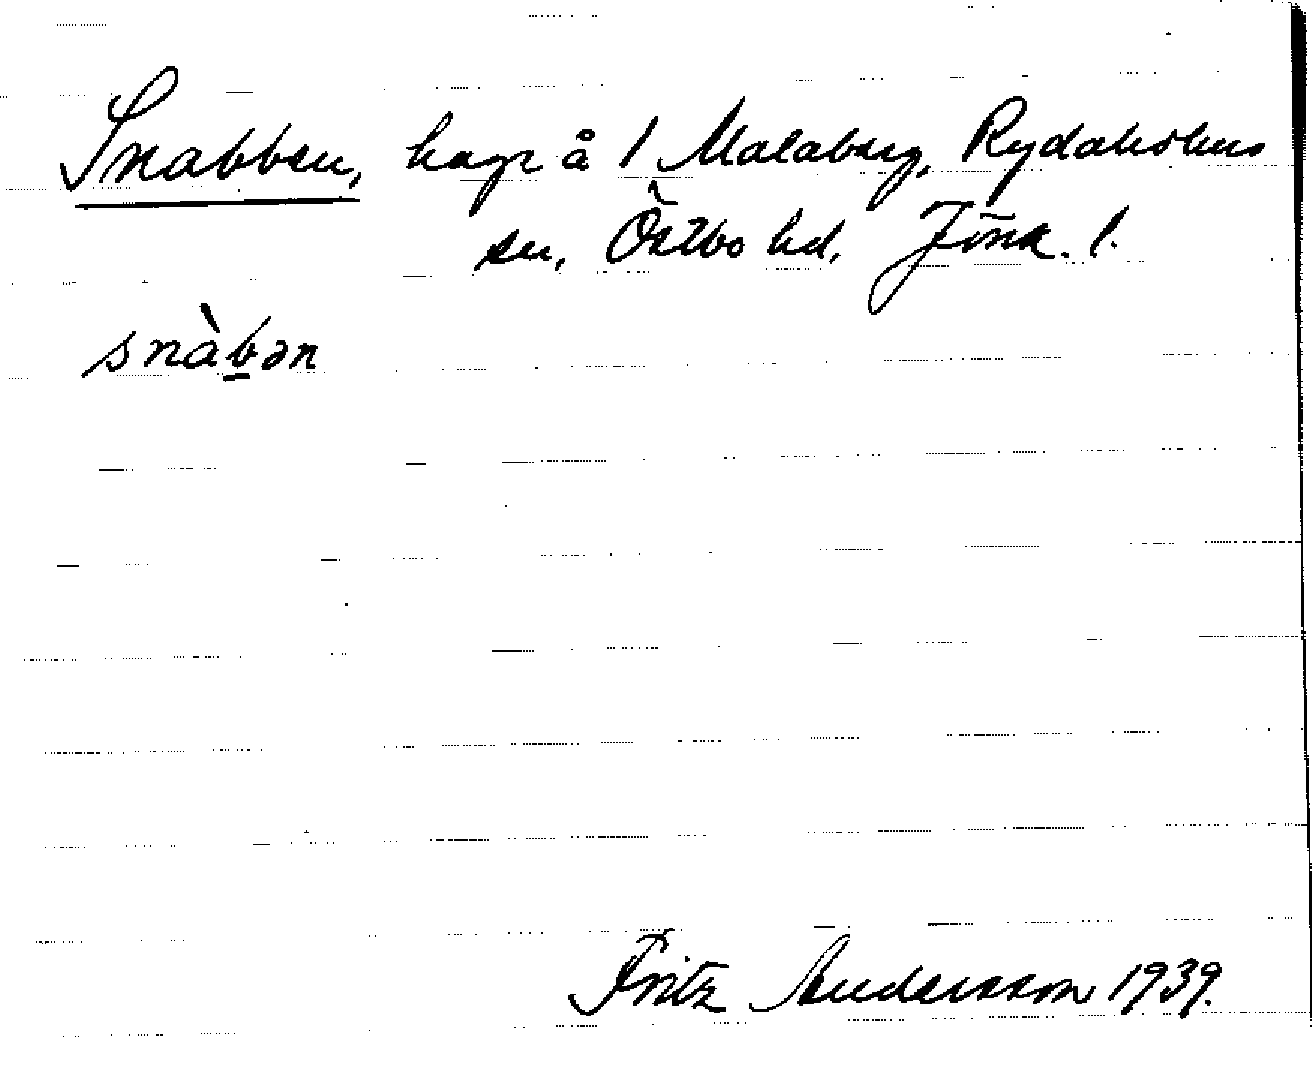 Snabben, hage å 1 Malaberg, Rydaholms
sn, Östbo hd, Jönk. l.
snàb̲ən
Fritz Andersson 1939.